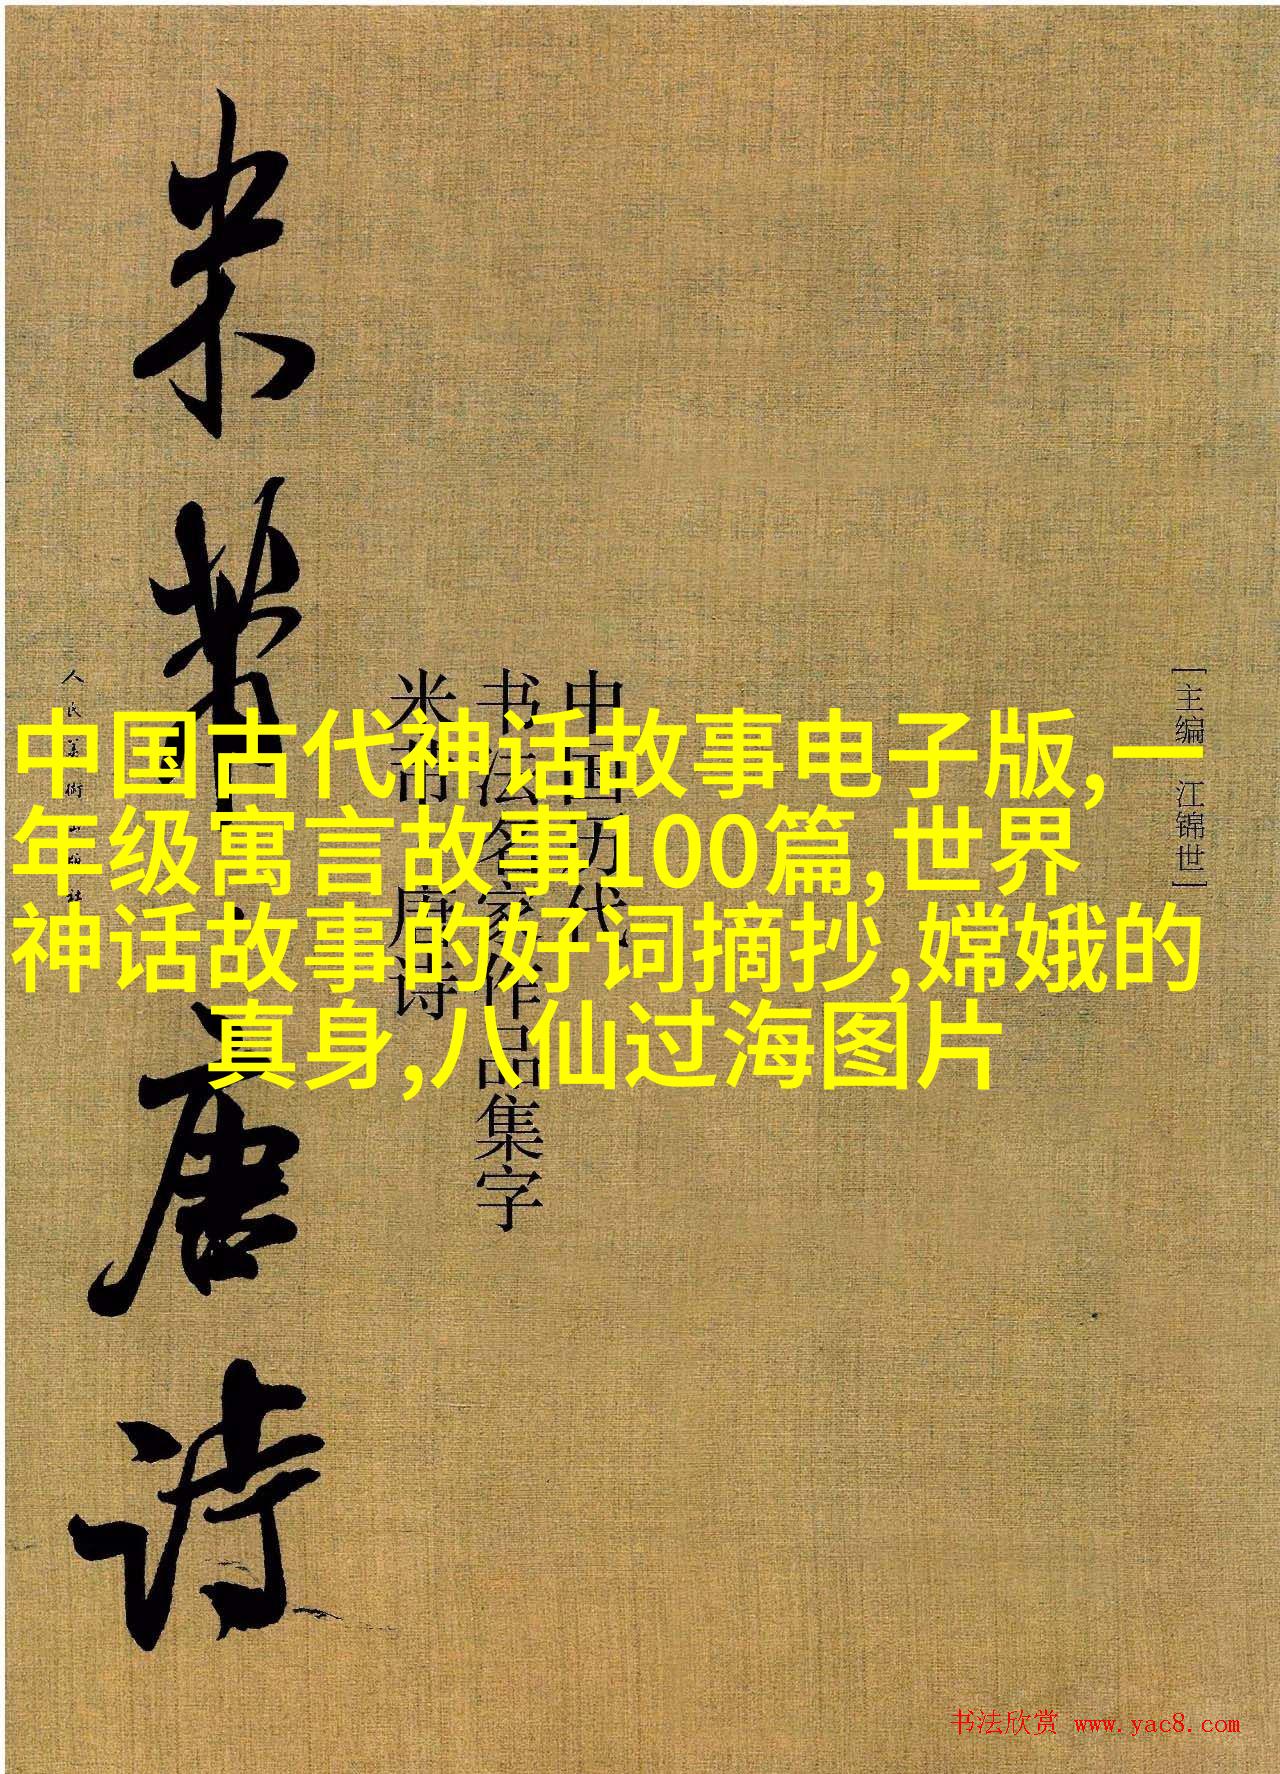 中国古代神话故事电子版,一
年级寓言故事100篇,世界
神话故事的好词摘抄,嫦娥的
真身,八仙过海图片
[主编 江锦世]
中国历代
书法名家作品集字
米芾·唐诗
米芾·唐诗
人民美术出版社
书法欣赏 www.yac8.com